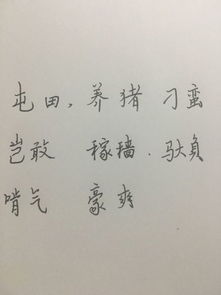 屯田, 养猪 刁蛮
岂敢 稼穑. 驮负
啃气 豪爽